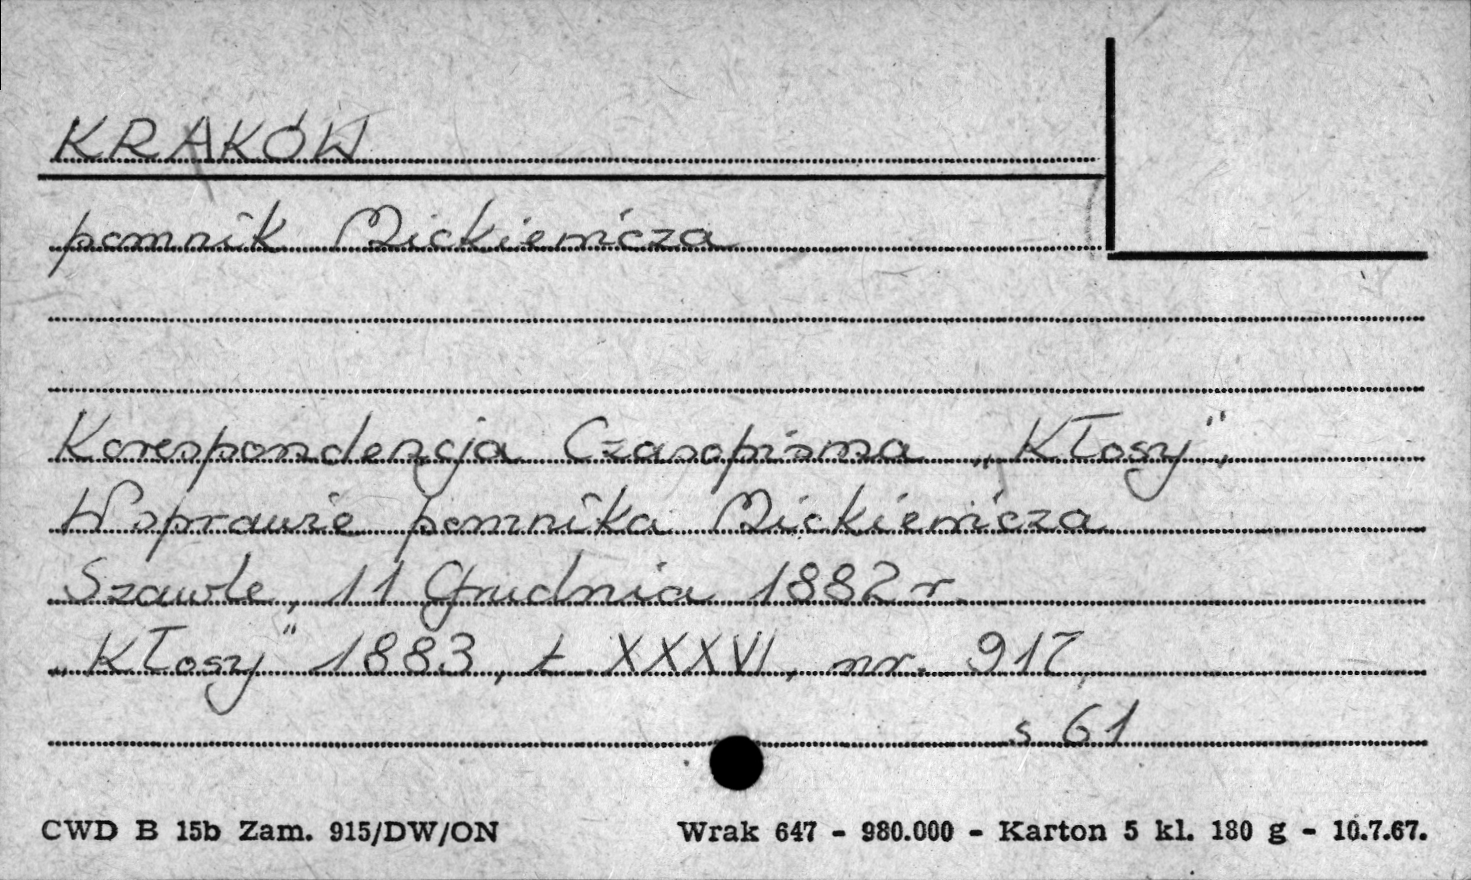 KRAKÓW
pomnik Mickiewicza
Korespondencja Czasopisma „Kłosy",
W sprawie pomnika Mickiewicza
Szawle, 11 Grudnia 1882 r.
„Kłosy" 1883, t. XXXVI, nr. 917,
s 61
CWD B 15b Zam. 915/DW/ON Wrak 647 - 980.000 - Karton 5 kl. 180 g - 10.7.67.